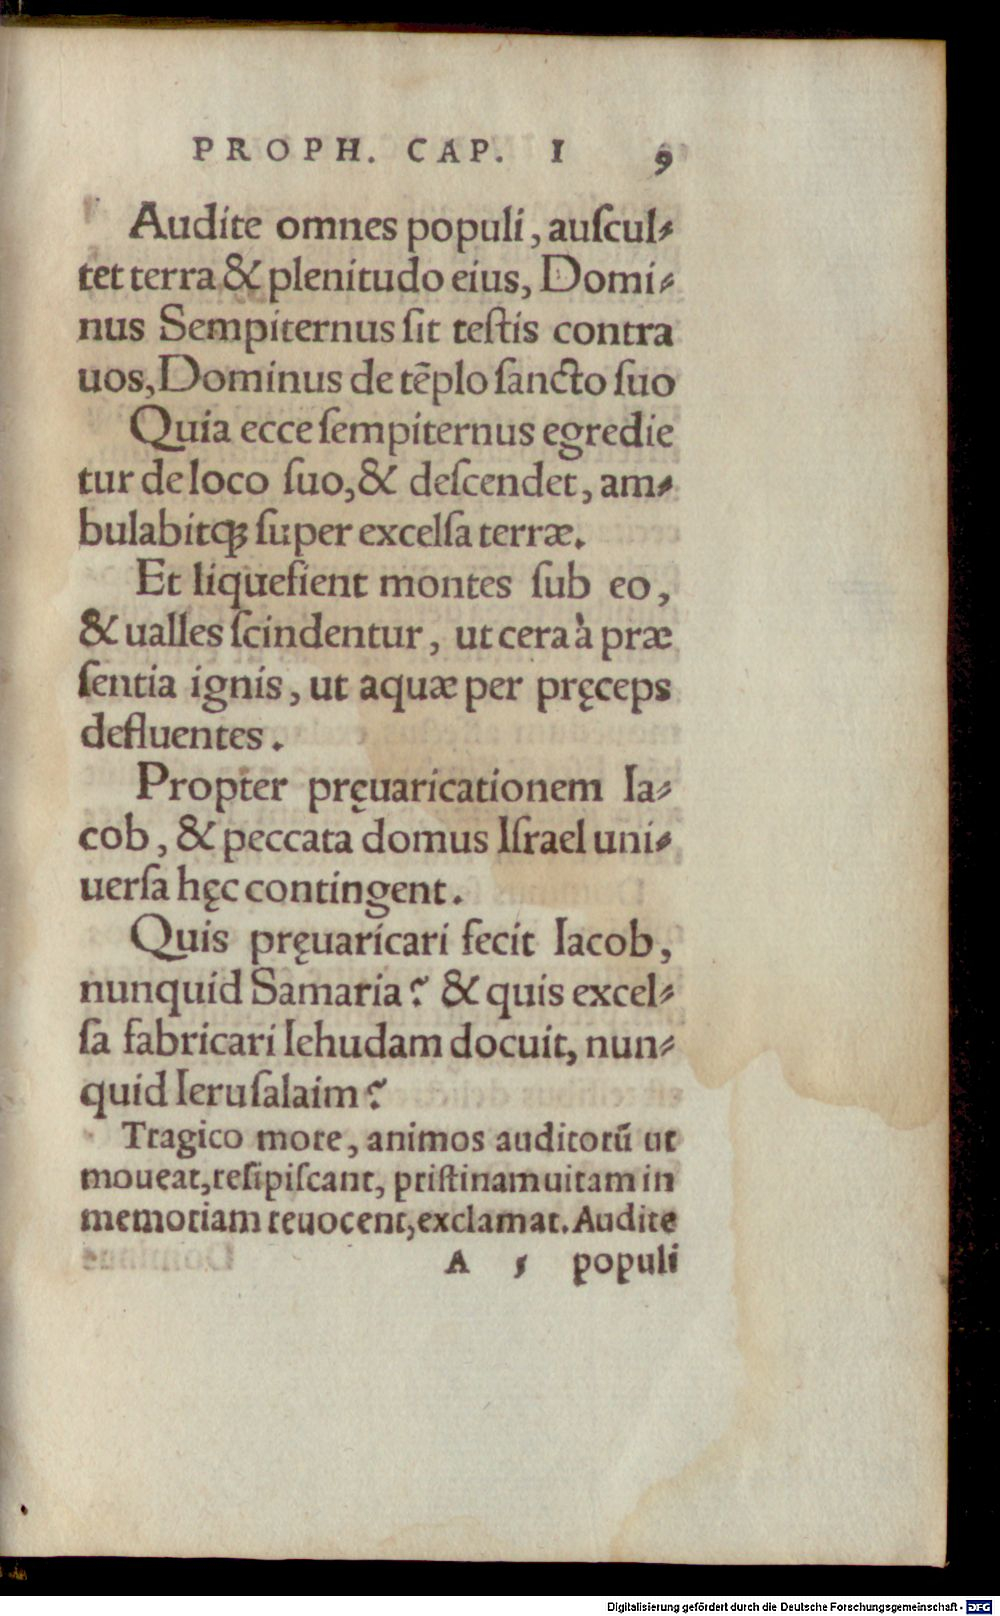 PROPH. CAP. I 9
Audite omnes populi, auſcul⸗
tet terra & plenitudo eius, Domi⸗
nus Sempiternus ſit teſtis contra
uos, Dominus de tẽplo ſancto ſuo
Quia ecce ſempiternus egredie
tur de loco ſuo, & deſcendet, am⸗
bulabitq̃; ſuper excelſa terræ.
Et liquefient montes ſub eo,
& ualles ſcindentur, ut cera à præ
ſentia ignis, ut aquæ per pręceps
defluentes.
Propter pręuaricationem Ia⸗
cob, & peccata domus Iſrael uni⸗
uerſa hęc contingent.
Quis pręuaricari fecit Iacob,
nunquid Samaria? & quis excel⸗
ſa fabricari Iehudam docuit, nun⸗
quid Ieruſalaim?
Tragico more, animos auditorũ ut
moueat, reſipiſcant, priſtinam uitam in
memoriam reuocent, exclamat. Audite
A 5 populi
Digitalisierung gefördert durch die Deutsche Forschungsgemeinschaft - DFG